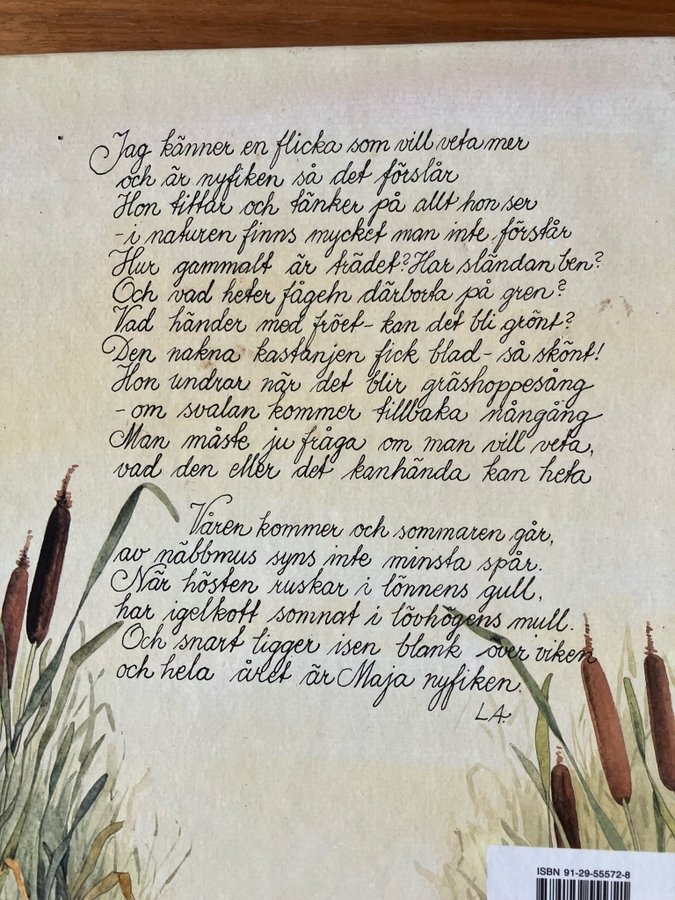 Jag känner en flicka som vill veta mer
och är nyfiken så det förslår
Hon tittar och tänker på allt hon ser
- i naturen finns mycket man inte förstår
Hur gammalt är trädet? Har sländan ben?
Och vad heter fågeln därborta på gren?
Vad händer med fröet - kan det bli grönt?
Den nakna kastanjen fick blad - så skönt!
Hon undrar när det blir gräshoppesång
- om svalan kommer tillbaka nångång
Man måste ju fråga om man vill veta,
vad den eller det kanhända kan heta
Våren kommer och sommaren går,
av näbbmus syns inte minsta spår.
När hösten ruskar i lönnens gull,
har igelkott somnat i lövhögens mull.
Och snart ligger isen blank över viken
och hela året är Maja nyfiken.
LA.
ISBN 91-29-55572-8